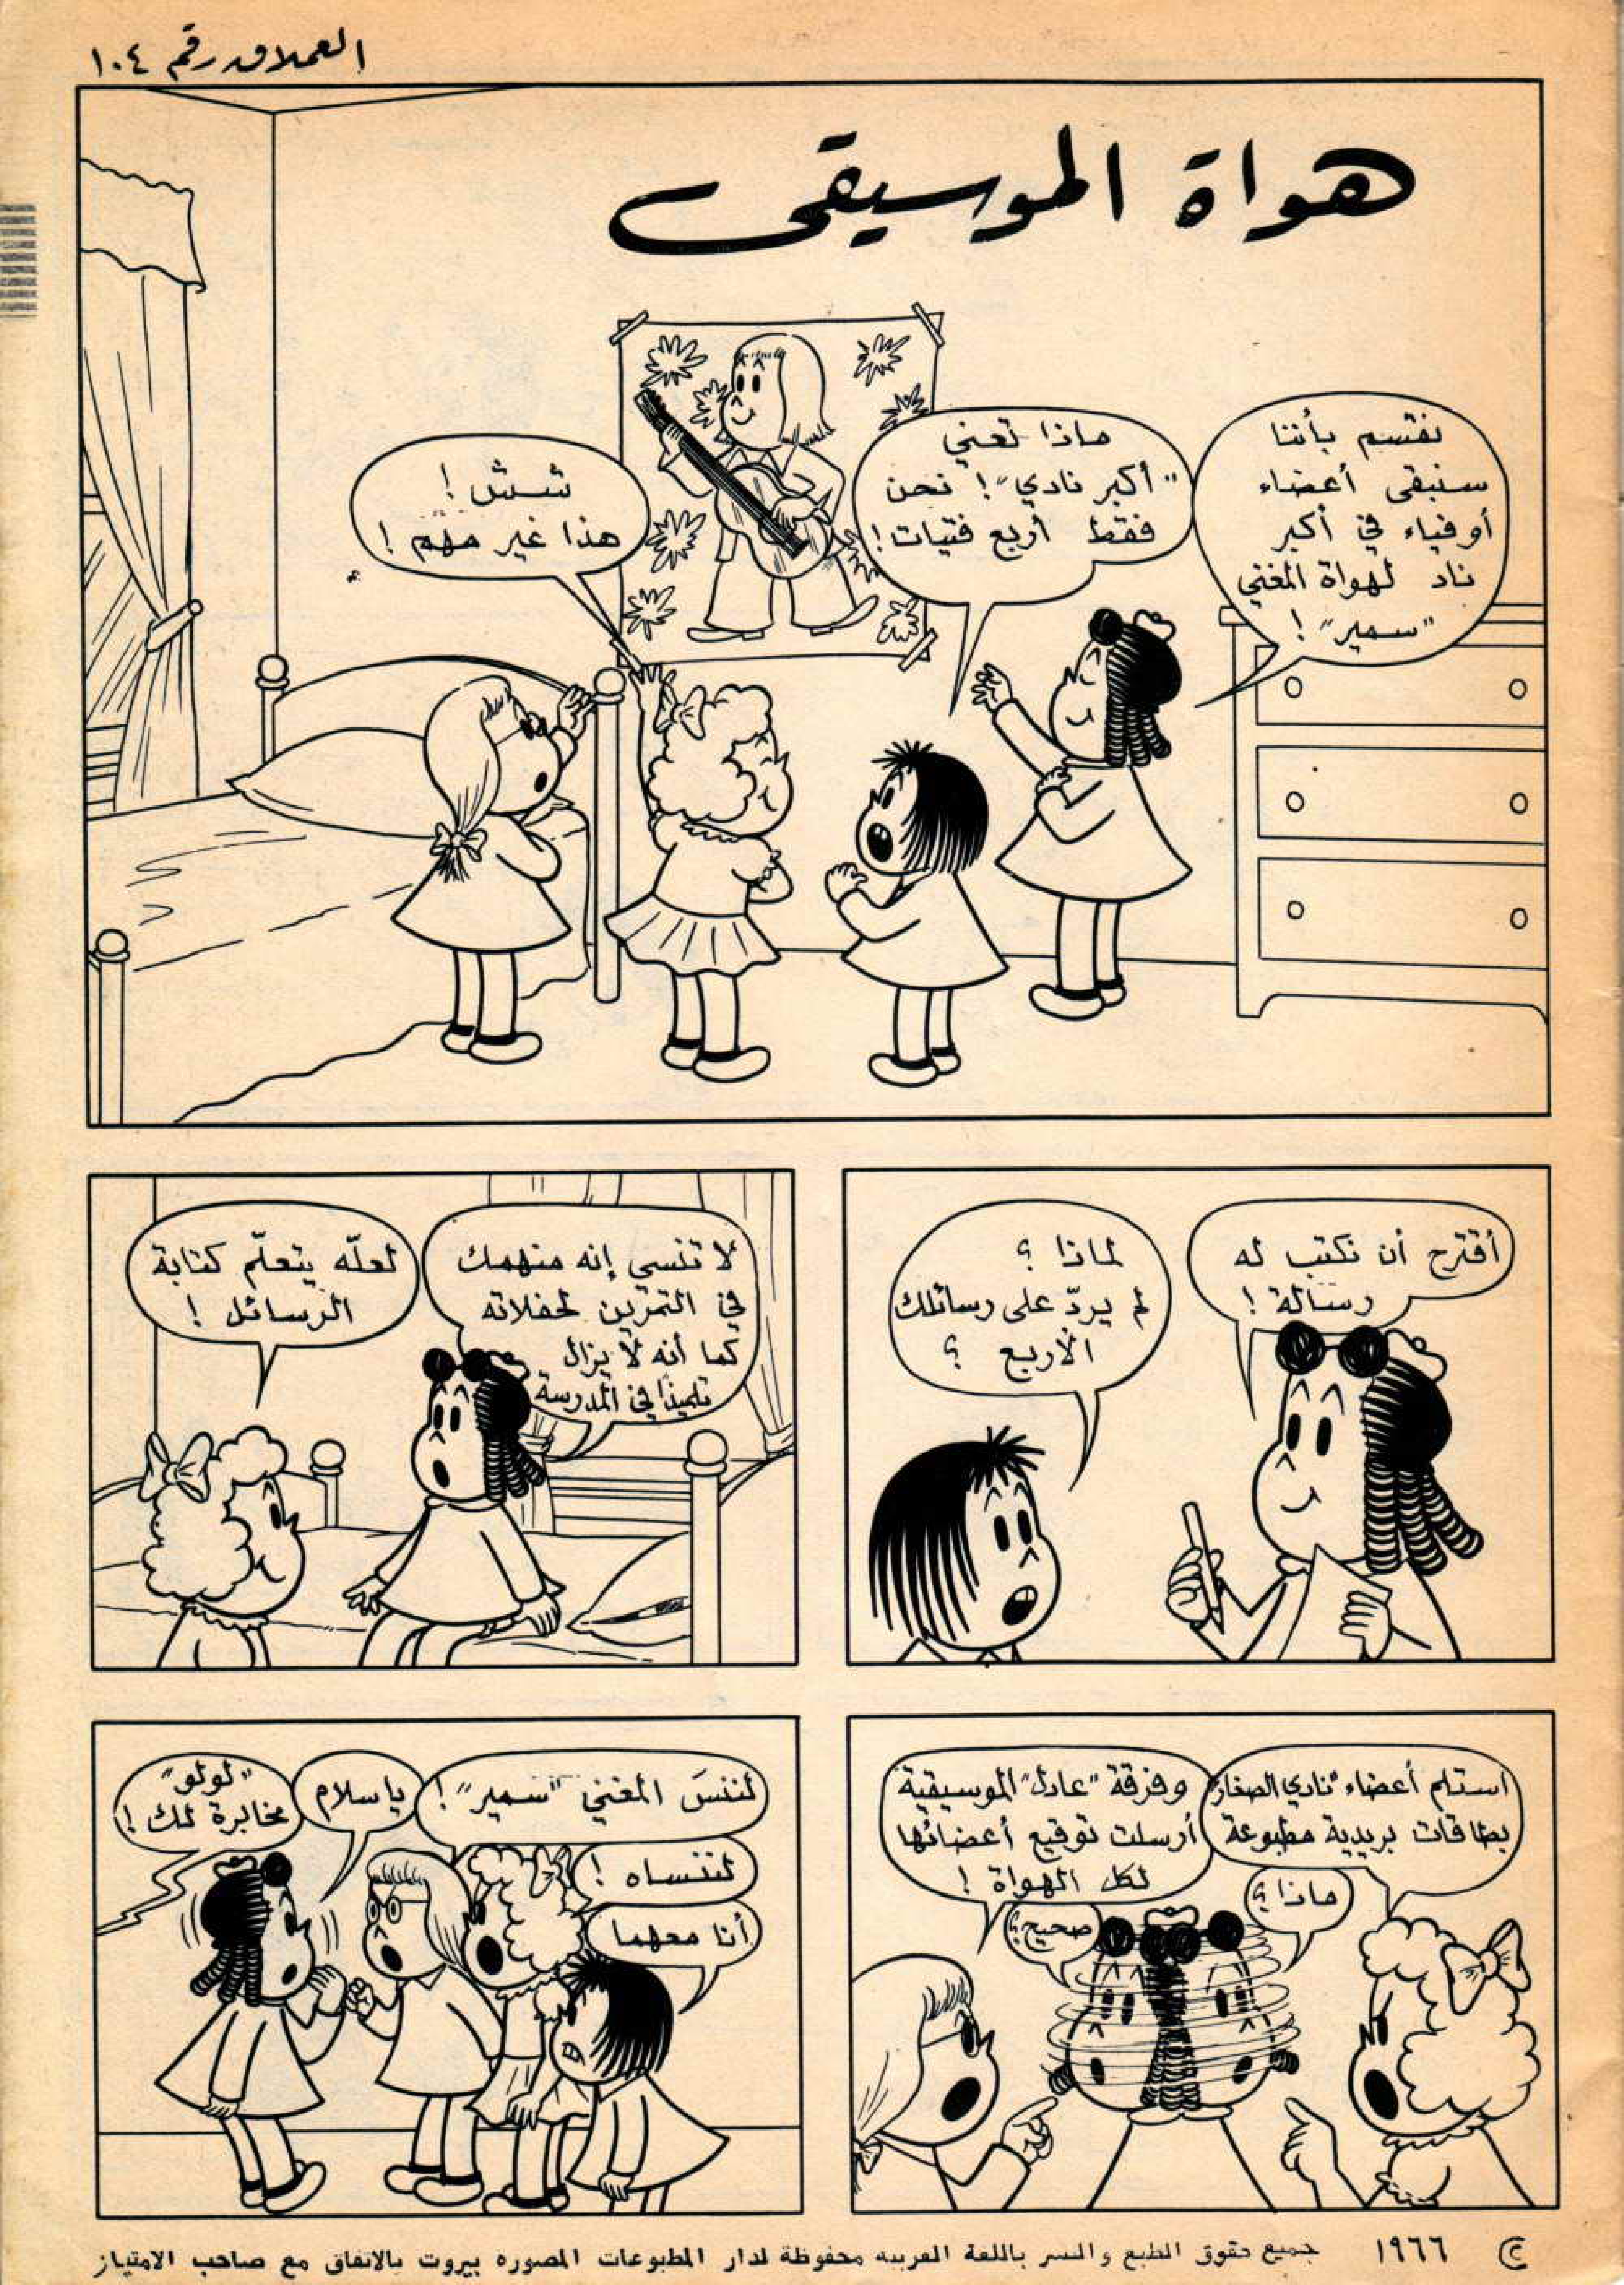 العملاق رقم ١٠٤
هواة الموسيقى
نقسم بأننا
سنبقى أعضاء
أوفياء في أكبر
ناد لهواة المغني
"سمير"!
ماذا تعني
"أكبر نادي"! نحن
فقط أربع فتيات!
شش!
هذا غير مهم!
أقترح أن نكتب له
رسالة!
لماذا؟
لم يردّ على رسائلك
الأربع؟
لا تنسي إنه منهمك
في التمرين لحفلاته
كما أنه لا يزال
تلميذا في المدرسة
لعلّه يتعلّم كتابة
الرسائل!
استلم أعضاء "نادي الصغار"
بطاقات بريدية مطبوعة
ماذا؟
وفرقة "عادل" الموسيقية
أرسلت توقيع أعضائها
لكل الهواة!
صحيح؟
لننسَ المغني "سمير"!
لننساه!
أنا معهما
يا سلام
"لولو"
مخابرة لك!
ج ١٩٦٦ جميع حقوق الطبع والنشر باللغة العربيه محفوظة لدار المطبوعات المصوره بيروت بالاتفاق مع صاحب الامتياز